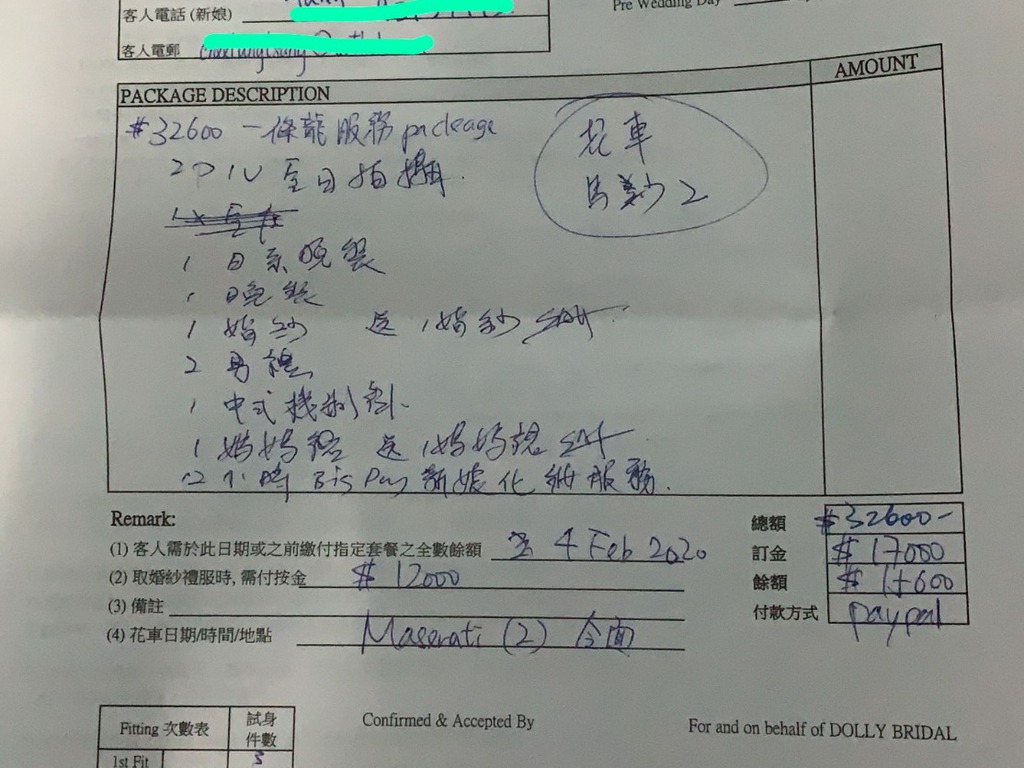 客人電話 (新娘)
Pre Wedding Day
客人電郵
PACKAGE DESCRIPTION
AMOUNT
$32600 一條龍服務 package
花車
2P1V 全日拍攝.
馬 2
1 日系晚裝
1 晚裝
1 婚紗 送 1 婚紗
2 男禮
1 中式
1 媽媽 送 1 媽媽
12小時 Big Day 新娘化妝服務.
Remark:
總額 $32600-
(1) 客人需於此日期或之前繳付指定套餐之全數餘額 4 Feb 2020
訂金 $17000
(2) 取婚紗禮服時, 需付按金 $12000
餘額 $15600
(3) 備註
付款方式 paypal
(4) 花車日期/時間/地點 Maserati (2)
Fitting 次數表
試身件數
Confirmed & Accepted By
For and on behalf of DOLLY BRIDAL
1st Fit
3